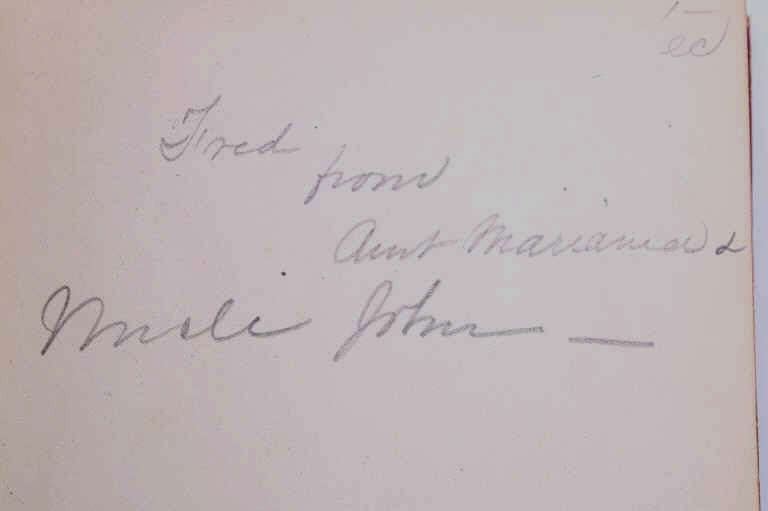 ec
Fred
from
Aunt Mariana &
Uncle John —